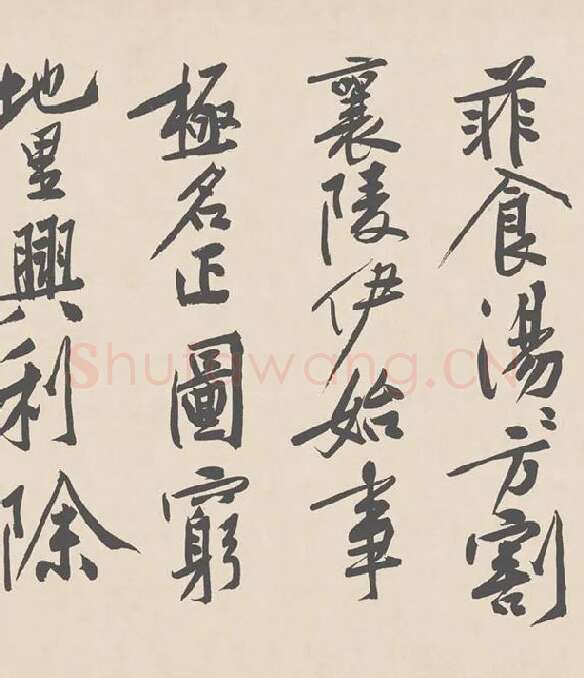 菲食湯〻方割
襄陵伊始事
極名正圖窮
地里興利除
Shufawang.CN